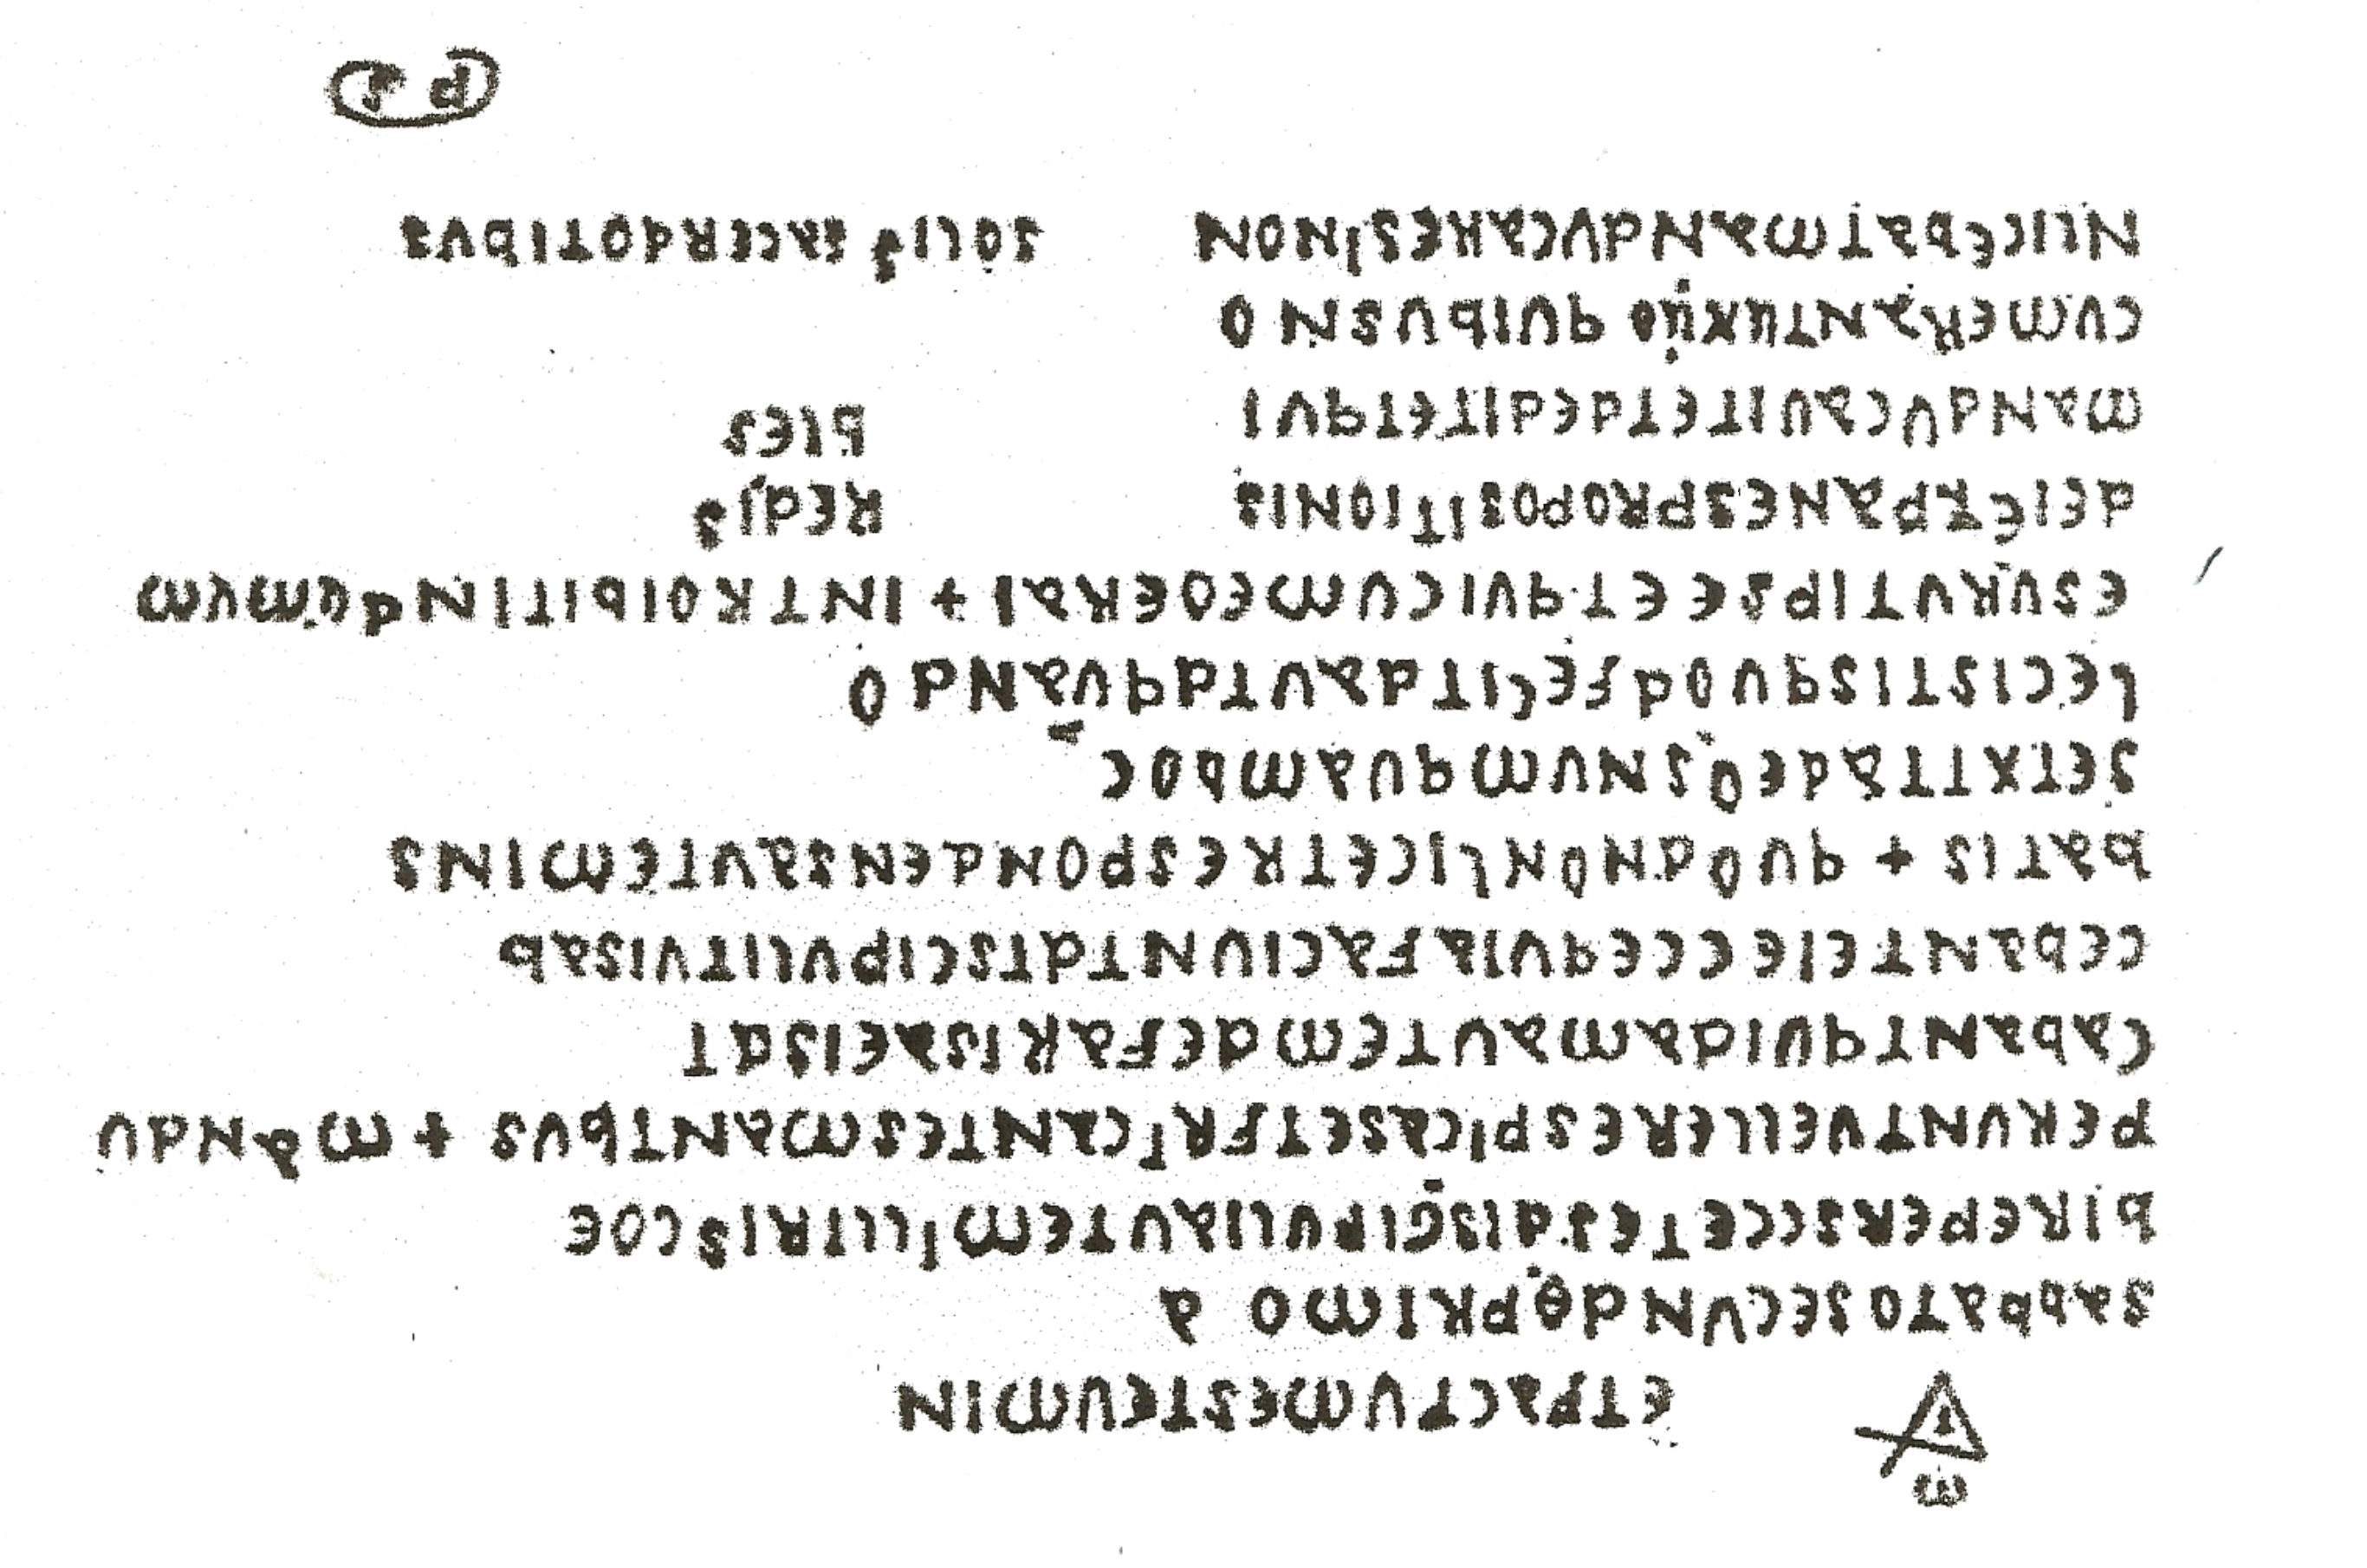 ETFACTVMESTEVMIN
SABBATOSECVNdOPRIMO A
bIREPERSCCETESdISGIPVLIAVTEMILLITRISCOE
PERVNTVELLERESPICASETFRICANTESMANTbVS + MANdV
CAbANTqVIdAMAVTEMdEFARISAEISdT
CEbANTEIECCEqVIAFACIVNTdTSCIPVLITVISAb
bATIS + qVOdNONLICETRESPONdENSAVTEMINS
SETXTTAdEOSNVMqVAMbOC
LECISTISqVOdFECITdAVTdqVANdO
ESVRVTIPSEETqVICVMEOERAI + INTROIbITINdVMVM
dEIETPANESPROPOSITIONIS REdIS
MANdVCAVITETdEdITETqVI bLES
CVMERANTUXUO qVIbVSNO
NLICEbATMANdVCARESINON SOLIS SACERdOTIbVS
PS